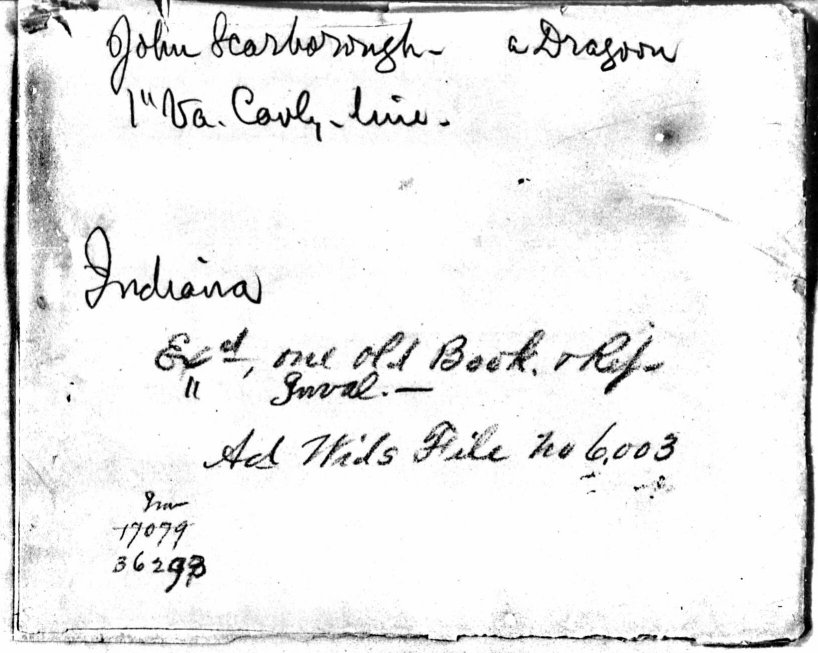 John Scarborough - a Dragoon
1" Va. Cavly - line.
Indiana
Exd, one old Book. & Rej-
" Inval. —
Act Wids File No 6,003
Inv
17079